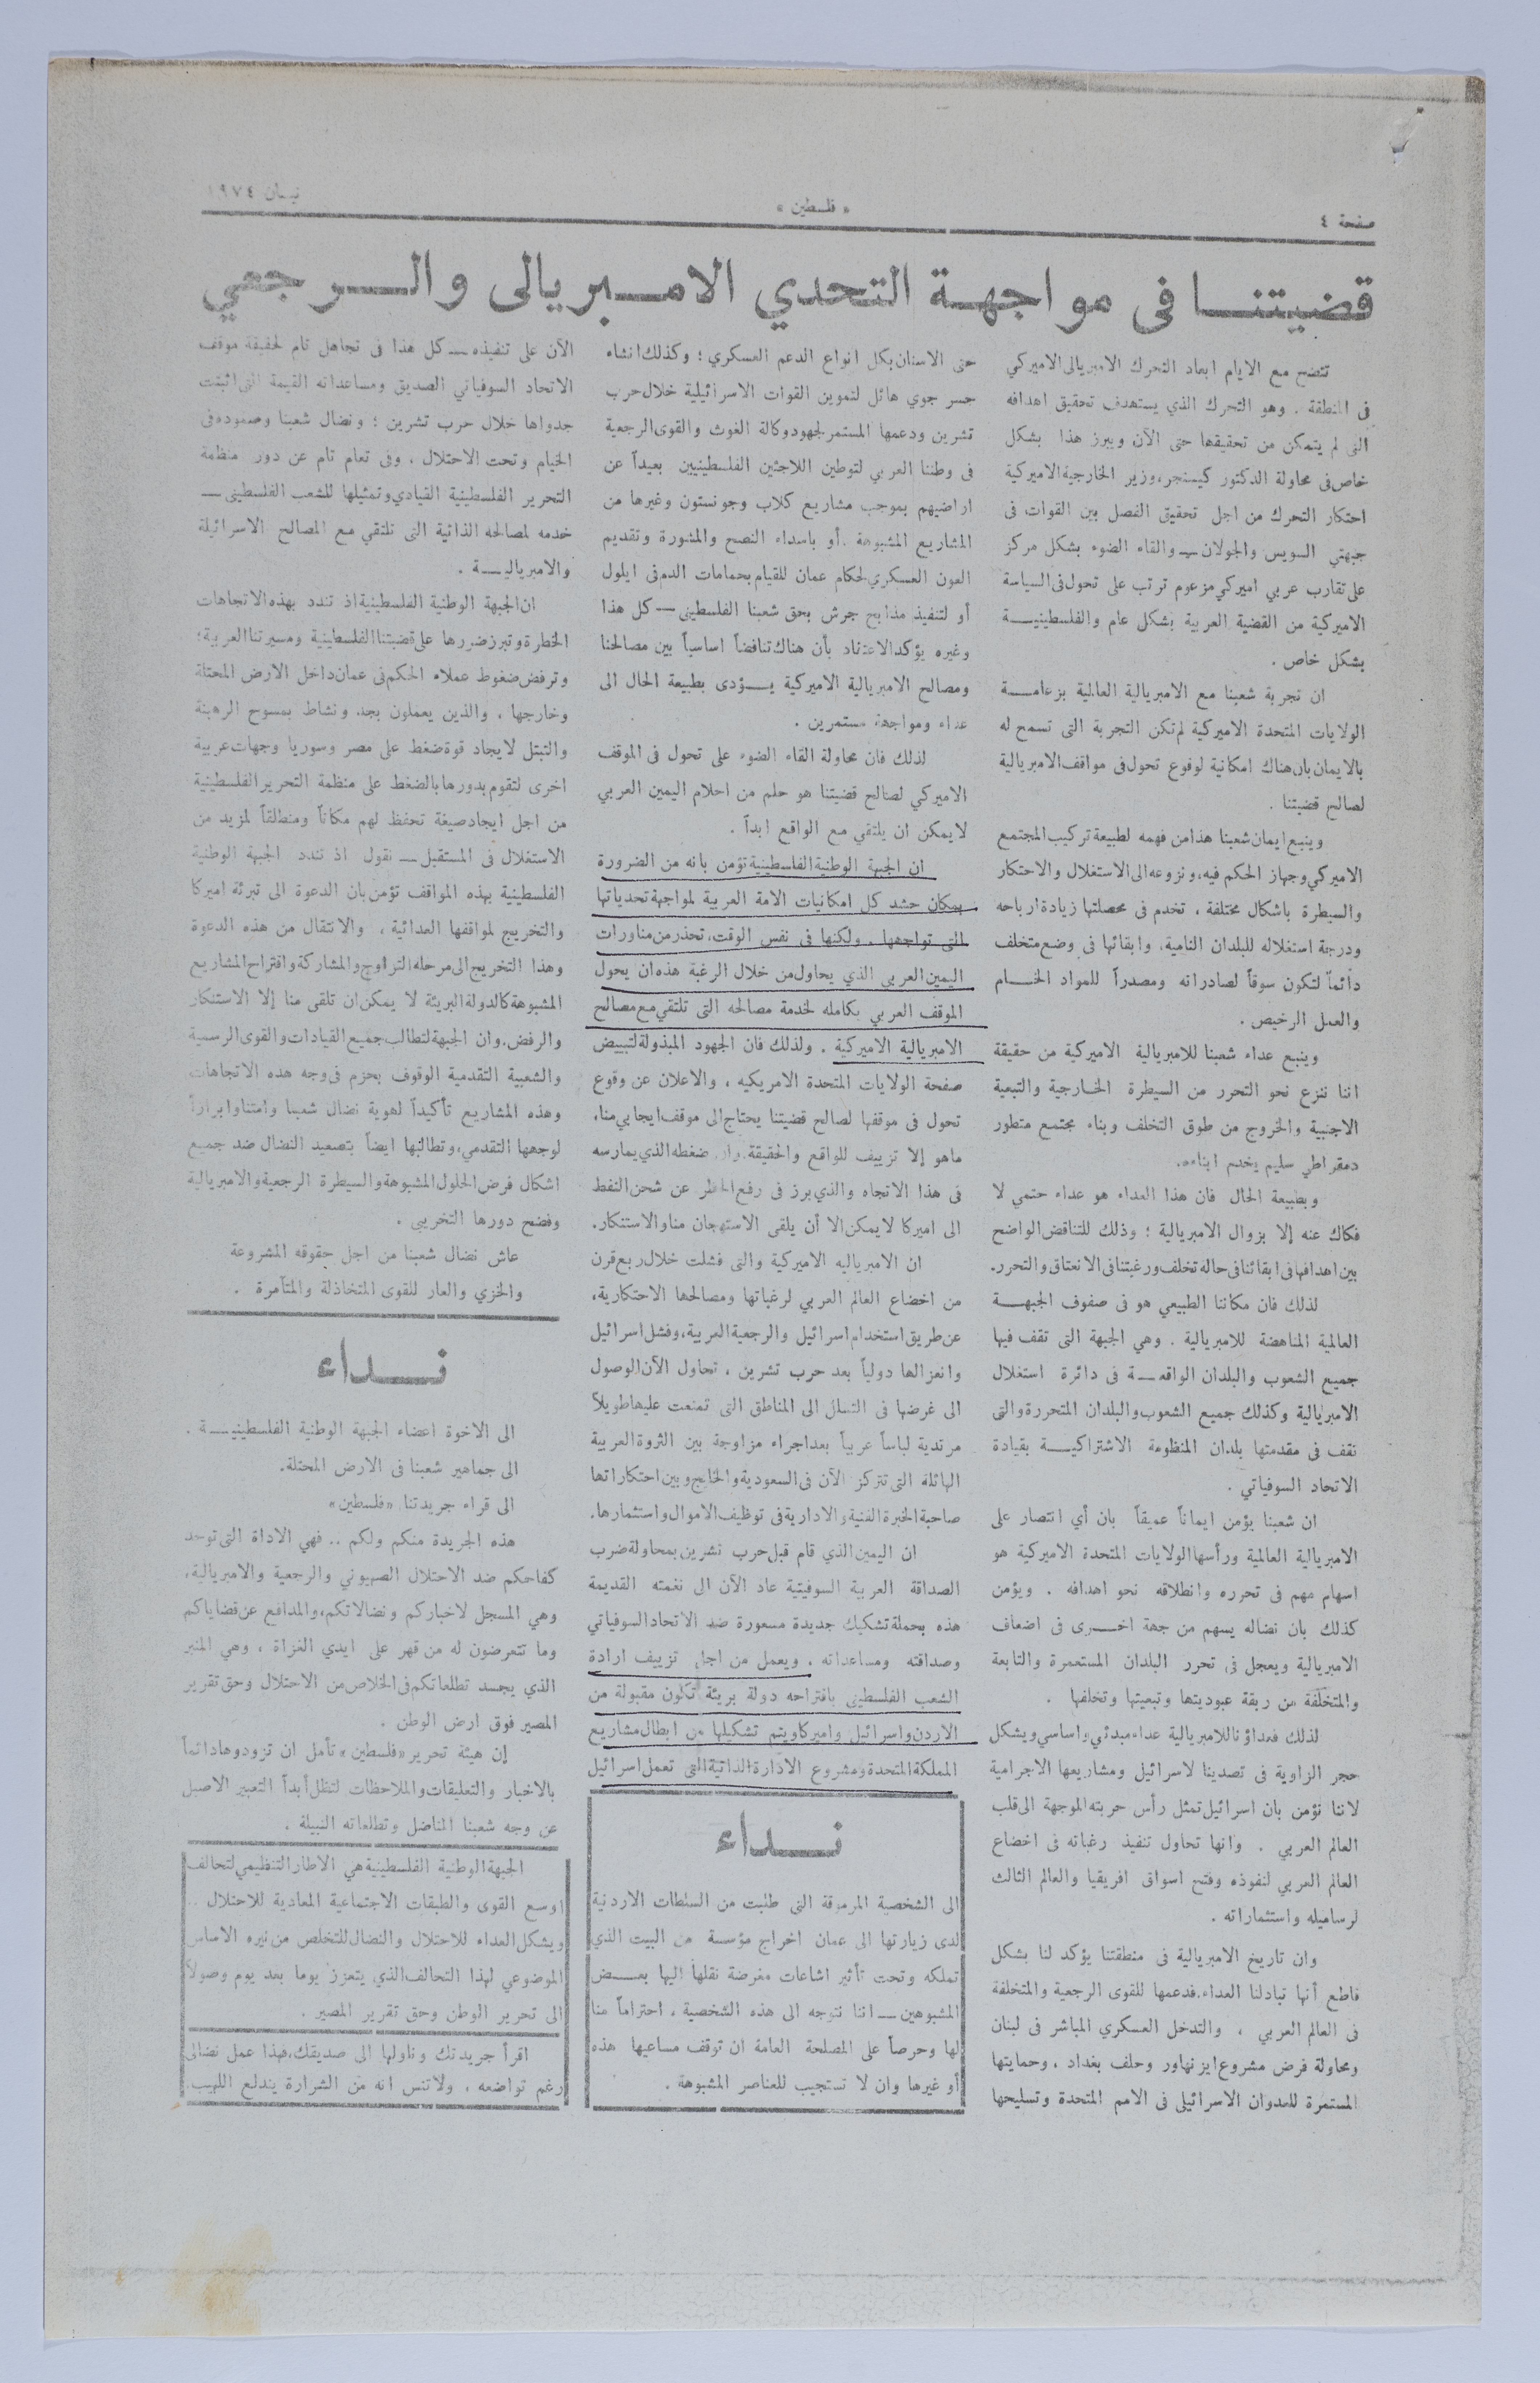 صفحة ٤
« فلسطين »
نيسان ١٩٧٤
قضيتنا فى مواجهة التحدي الامبريالى والرجعي
تتضح مع الايام ابعاد التحرك الامبريالى الاميركي
فى المنطقة . وهو التحرك الذي يستهدف تحقيق اهدافه
التى لم يتمكن من تحقيقها حتى الآن ويبرز هذا بشكل
خاص فى محاولة الدكتور كيسنجر، وزير الخارجية الاميركية
احتكار التحرك من اجل تحقيق الفصل بين القوات فى
جبهتي السويس والجولان ــ والقاء الضوء بشكل مركز
على تقارب عربي اميركي مزعوم ترتب على تحول فى السياسة
الاميركية من القضية العربية بشكل عام والفلسطينيــة
بشكل خاص .
ان تجربة شعبنا مع الامبريالية العالمية بزعامــة
الولايات المتحدة الاميركية لم تكن التجربة التى تسمح له
بالايمان بان هناك امكانية لوقوع تحول فى مواقف الامبريالية
لصالح قضيتنا .
وينبع ايمان شعبنا هذا من فهمه لطبيعة تركيب المجتمع
الاميركي وجهاز الحكم فيه، ونزوعه الى الاستغلال والاحتكار
والسيطرة باشكال مختلفة ، تخدم فى محصلتها زيادة ارباحه
ودرجة استغلاله للبلدان النامية، وابقائها فى وضع متخلف
دائماً لتكون سوقاً لصادراته ومصدراً للمواد الخــام
والعمل الرخيص .
وينبع عداء شعبنا للامبريالية الاميركية من حقيقة
اننا ننزع نحو التحرر من السيطرة الخارجية والتبعية
الاجنبية والخروج من طوق التخلف وبناء مجتمع متطور
دمقراطي سليم يخدم ابناءه.
وبطبيعة الحال فان هذا العداء هو عداء حتمي لا
فكاك عنه إلا بزوال الامبريالية ؛ وذلك للتناقض الواضح
بين اهدافها فى ابقائنا فى حالة تخلف ورغبتنا فى الانعتاق والتحرر.
لذلك فان مكاننا الطبيعي هو فى صفوف الجبهــة
العالمية المناهضة للامبريالية . وهي الجبهة التى تقف فيها
جميع الشعوب والبلدان الواقعــة فى دائرة استغلال
الامبريالية وكذلك جميع الشعوب والبلدان المتحررة والتى
تقف فى مقدمتها بلدان المنظومة الاشتراكيــة بقيادة
الاتحاد السوفياتي .
ان شعبنا يؤمن ايماناً عميقاً بان أي انتصار على
الامبريالية العالمية ورأسها الولايات المتحدة الاميركية هو
اسهام مهم فى تحرره وانطلاقه نحو اهدافه . ويؤمن
كذلك بان نضاله يسهم من جهة اخــرى فى اضعاف
الامبريالية ويعجل فى تحرر البلدان المستعمرة والتابعة
والمتخلفة من ربقة عبوديتها وتبعيتها وتخلفها .
لذلك فعداؤنا للامبريالية عداء مبدئي واساسي ويشكل
حجر الزاوية فى تصدينا لاسرائيل ومشاريعها الاجرامية
لاننا نؤمن بان اسرائيل تمثل رأس حربته الموجهة الى قلب
العالم العربي . وانها تحاول تنفيذ رغباته فى اخضاع
العالم العربي لنفوذه وفتح اسواق افريقيا والعالم الثالث
لرساميله واستثماراته .
وان تاريخ الامبريالية فى منطقتنا يؤكد لنا بشكل
قاطع أنها تبادلنا العداء. فدعمها للقوى الرجعية والمتخلفة
فى العالم العربي ، والتدخل العسكري المباشر فى لبنان
ومحاولة فرض مشروع ايزنهاور وحلف بغداد ، وحمايتها
المستمرة للعدوان الاسرائيلى فى الامم المتحدة وتسليحها
حتى الاسنان بكل انواع الدعم العسكري ؛ وكذلك انشاء
جسر جوي هائل لتموين القوات الاسرائيلية خلال حرب
تشرين ودعمها المستمر لجهود وكالة الغوث والقوى الرجعية
فى وطننا العربي لتوطين اللاجئين الفلسطينيين بعيداً عن
اراضيهم بموجب مشاريع كلاب وجونستون وغيرها من
المشاريع المشبوهة . أو باسداء النصح والمشورة وتقديم
العون العسكري لحكام عمان للقيام بحمامات الدم فى ايلول
أو لتنفيذ مذابح جرش بحق شعبنا الفلسطينى ــ كل هذا
وغيره يؤكد الاعتقاد بأن هناك تناقضاً اساسياً بين مصالحنا
ومصالح الامبريالية الاميركية يــؤدى بطبيعة الحال الى
عداء ومواجهة مستمرين .
لذلك فان محاولة القاء الضوء على تحول فى الموقف
الاميركي لصالح قضيتنا هو حلم من احلام اليمين العربي
لا يمكن ان يلتقي مع الواقع ابداً .
ان الجبهة الوطنية الفلسطينية تؤمن بانه من الضرورة
بمكان حشد كل امكانيات الامة العربية لمواجهة تحدياتها
التى تواجهها . ولكنها فى نفس الوقت، تحذر من مناورات
اليمين العربى الذي يحاول من خلال الرغبة هذه ان يحول
الموقف العربي بكامله لخدمة مصالحه التى تلتقي مع مصالح
الامبريالية الاميركية . ولذلك فان الجهود المبذولة لتبييض
صفحة الولايات المتحدة الامريكيه ، والاعلان عن وقوع
تحول فى موقفها لصالح قضيتنا يحتاج الى موقف ايجابي منا،
ماهو إلا تزييف للواقع والحقيقة. وان ضغطه الذي يمارسه
فى هذا الاتجاه والذي برز فى رفع الحظر عن شحن النفط
الى اميركا لا يمكن الا أن يلقى الاستهجان منا والاستنكار.
ان الامبرياليه الاميركية والتى فشلت خلال ربع قرن
من اخضاع العالم العربي لرغباتها ومصالحها الاحتكارية،
عن طريق استخدام اسرائيل والرجعية العربية، وفشل اسرائيل
وانعزالها دولياً بعد حرب تشرين ، تحاول الآن الوصول
الى غرضها فى التسلل الى المناطق التى تمنعت عليها طويلاً
مرتدية لباساً عربياً بعد اجراء مزاوجة بين الثروة العربية
الهائلة التى تتركز الآن فى السعودية والخليج وبين احتكاراتها
صاحبة الخبرة الفنية والادارية فى توظيف الاموال واستثمارها.
ان اليمين الذي قام قبل حرب تشرين بمحاولة ضرب
الصداقة العربية السوفيتية عاد الآن الى نغمته القديمة
هذه بحملة تشكيك جديدة مسعورة ضد الاتحاد السوفياتي
وصداقته ومساعداته . ويعمل من اجل تزييف ارادة
الشعب الفلسطينى باقتراحه دولة بريئة تكون مقبولة من
الاردن واسرائيل واميركا ويتم تشكيلها من ابطال مشاريع
المملكة المتحدة ومشروع الادارة الذاتية التى تعمل اسرائيل
نــداء
الى الشخصية المرموقة التى طلبت من السلطات الاردنية
لدى زيارتها الى عمان اخراج مؤسسة من البيت الذي
تملكه وتحت تأثير اشاعات مغرضة نقلها اليها بعــض
المشبوهين ــ اننا نتوجه الى هذه الشخصية ، احتراماً منا
لها وحرصاً على المصلحة العامة ان توقف مساعيها هذه
أو غيرها وان لا تستجيب للعناصر المشبوهة .
الآن على تنفيذه ــ كل هذا فى تجاهل تام لحقيقة موقف
الاتحاد السوفياتي الصديق ومساعداته القيمة التى اثبتت
جدواها خلال حرب تشرين ؛ ونضال شعبنا وصموده فى
الخيام وتحت الاحتلال ، وفى تعام تام عن دور منظمة
التحرير الفلسطينية القيادي وتمثيلها للشعب الفلسطينى ــ
خدمه لمصالحه الذاتية التى تلتقي مع المصالح الاسرائيلة
والامبرياليــة .
ان الجبهة الوطنية الفلسطينية اذ تندد بهذه الاتجاهات
الخطرة وتبرز ضررها على قضيتنا الفلسطينية ومسيرتنا العربية؛
وترفض ضغوط عملاء الحكم فى عمان داخل الارض المحتلة
وخارجها ، والذين يعملون بجد ونشاط بمسوح الرهبنة
والتبتل لايجاد قوة ضغط على مصر وسوريا وجهات عربية
اخرى لتقوم بدورها بالضغط على منظمة التحرير الفلسطينية
من اجل ايجاد صيغة تحفظ لهم مكاناً ومنطلقاً لمزيد من
الاستغلال فى المستقبل ــ نقول اذ تندد الجبهة الوطنية
الفلسطينية بهذه المواقف تؤمن بان الدعوة الى تبرئة اميركا
والتخريج لمواقفها العدائية ، والانتقال من هذه الدعوة
وهذا التخريج الى مرحلة التزاوج والمشاركة واقتراح المشاريع
المشبوهة كالدولة البريئة لا يمكن ان تلقى منا إلا الاستنكار
والرفض. وان الجبهة لتطالب جميع القيادات والقوى الرسمية
والشعبية التقدمية الوقوف بحزم فى وجه هذه الاتجاهات
وهذه المشاريع تأكيداً لهوية نضال شعبنا وامتنا وابرازاً
لوجهها التقدمي، وتطالبها ايضاً بتصعيد النضال ضد جميع
اشكال فرض الحلول المشبوهة والسيطرة الرجعية والامبريالية
وفضح دورها التخريبى .
عاش نضال شعبنا من اجل حقوقه المشروعة
والخزي والعار للقوى المتخاذلة والمتآمرة .
نــداء
الى الاخوة اعضاء الجبهة الوطنية الفلسطينيــة .
الى جماهير شعبنا فى الارض المحتلة.
الى قراء جريدتنا «فلسطين»
هذه الجريدة منكم ولكم .. فهي الاداة التى توحد
كفاحكم ضد الاحتلال الصهيوني والرجعية والامبريالية،
وهي المسجل لاخباركم ونضالاتكم، والمدافع عن قضاياكم
وما تتعرضون له من قهر على ايدي الغزاة ، وهي المنبر
الذي يجسد تطلعاتكم فى الخلاص من الاحتلال وحق تقرير
المصير فوق ارض الوطن .
إن هيئة تحرير «فلسطين» تأمل ان تزودوها دائماً
بالاخبار والتعليقات والملاحظات لتظل أبداً التعبير الاصيل
عن وجه شعبنا المناضل وتطلعاته النبيلة .
الجبهة الوطنية الفلسطينية هي الاطار التنظيمي لتحالف
اوسع القوى والطبقات الاجتماعية المعادية للاحتلال ..
ويشكل العداء للاحتلال والنضال للتخلص من نيره الاساس
الموضوعي لهذا التحالف الذي يتعزز يوما بعد يوم وصولاً
الى تحرير الوطن وحق تقرير المصير .
اقرأ جريدتك وناولها الى صديقك، فهذا عمل نضالى
رغم تواضعه ، ولا تنس انه من الشرارة يندلع اللهيب.